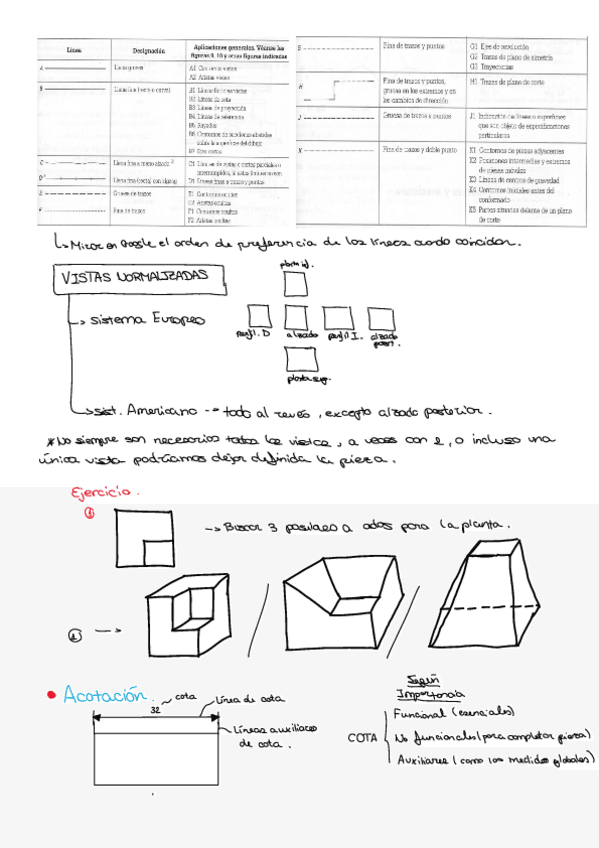 Línea
Designación
Aplicaciones generales. Véanse las
figuras 9, 10 y otras figuras indicadas
A
Llena gruesa
A1 Contornos vistos
A2 Aristas vistas
B
Llena fina (recta o curva)
B1 Líneas ficticias vistas
B2 Líneas de cota
B3 Líneas de proyección
B4 Líneas de referencia
B5 Rayados
B6 Contornos de secciones abatidas
B7 Ejes cortos
C
Llena fina a mano alzada
C1 Límites de vistas o cortes parciales o
interrumpidos, si estos límites no son
D
Llena fina (recta) con zigzag
D1 líneas finas a trazos y puntos
E
Gruesa de trazos
E1 Contornos ocultos
E2 Aristas ocultas
F
Fina de trazos
F1 Contornos ocultos
F2 Aristas ocultas
Fina de trazos y puntos
G1 Ejes de revolución
G2 Trazas de plano de simetría
G3 Trayectorias
H
Fina de trazos y puntos,
gruesa en los extremos y en
los cambios de dirección
H1 Trazas de plano de corte
J
Gruesa de trazos y puntos
J1 Indicación de líneas o superficies
que son objeto de especificaciones
particulares
K
Fina de trazos y doble punto
K1 Contornos de piezas adyacentes
K2 Posiciones intermedias y extremos
de piezas móviles
K3 Líneas de centros de gravedad
K4 Contornos iniciales antes del
conformado
K5 Partes situadas delante de un plano
de corte
Mirar en Google el orden de preferencia de las líneas cuando coincidan.
planta inf.
VISTAS NORMALIZADAS
Sistema Europeo
perfil. D
alzado
perfil I.
alzado
post.
planta sup.
sist. Americano -> todo al revés, excepto alzado posterior.
*No siempre son necesarias todas las vistas, a veces con 2, o incluso una
única vista podríamos dejar definida la pieza.
Ejercicio.
1
-> Buscar 3 posibles alzados para la planta.
2
Acotación.
cota
Línea de cota
32
Líneas auxiliares
de cota.
Según
Importancia
COTA
Funcional (esenciales)
No funcionales (para completar pieza)
Auxiliares (como las medidas globales)